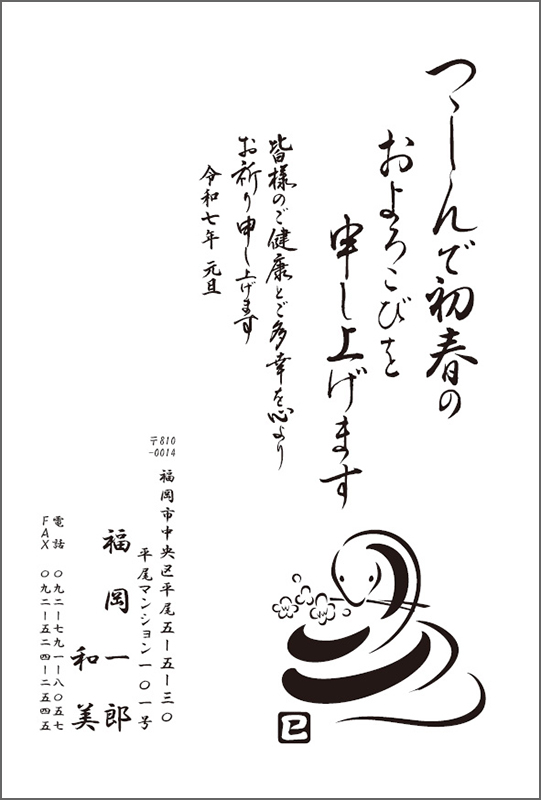 つゝしんで初春の
およろこびを
申し上げます
皆様のご健康とご多幸を心より
お祈り申し上げます
令和七年 元旦
〒810
-0014
福岡市中央区平尾五ー五ー三〇
平尾マンション一〇一号
福岡一郎
和美
電話 〇九二ー七九一ー八〇五七
FAX 〇九二ー五二四ー二五四五
巳